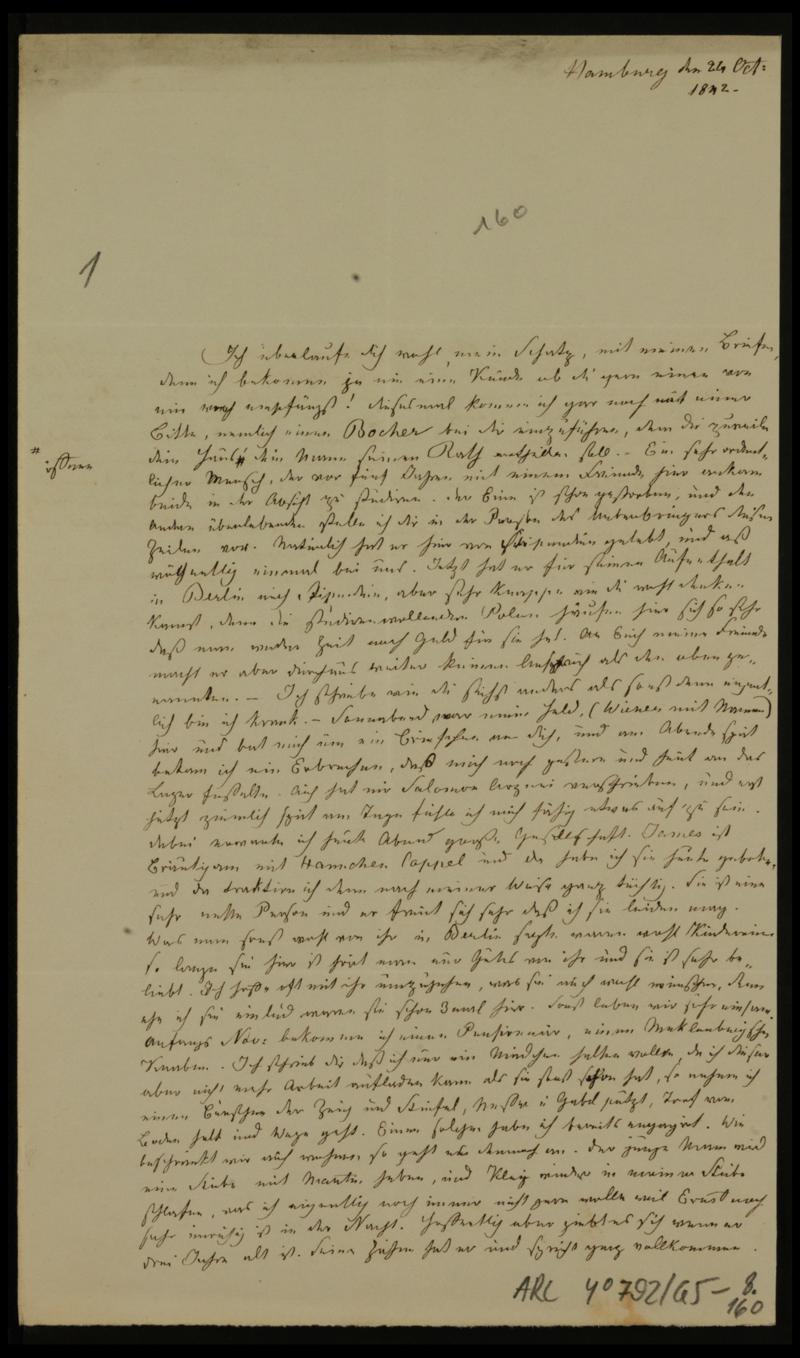 Hamburg den 24 Oct:
1842.-
160
1
Ich überlaufe dich wohl, mein Schatz, mit meinen Briefen,
denn ich bekomme ja nie eine Kunde ob du gern einen von
mir empfängst! Diesesmal komme ich gar noch mit einer
Bitte, nemlich einen Bocher bei dir einzuführen, dem du zuweilen
dein Haus # dein Mann seinen Rath ertheilen soll. - Ein sehr ordent-
# öffnen
licher Mensch, der vor fünf Jahren mit einem Freunde hier ankam
beide in der Absicht zu studiren. Der Eine ist schon gestorben, und den
andern überlebenden stelle ich dir in der Person des Ueberbringers dieser
Zeilen vor. Natürlich hat er hier von Stipendien gelebt, und aß
wöchentlich einmal bei uns. Jetzt hat er für seinen Aufenthalt
in Berlin auch Stipendien, aber sehr knappe wie du wohl denken
kannst, denn die studirenwollenden Polen häufen hier sich so sehr
daß man weder Zeit noch Geld für sie hat. An Euch meine Freunde
macht er aber durchaus weiter keinen Anspruch als den oben ge-
nannten. - Ich schreibe wie du siehst anders als sonst denn eigent-
lich bin ich krank. - Sonnabend war mein Held, (Wiener mit Namen)
hier und bat mich um ein Briefchen an dich, und am Abende spät
bekam ich ein Erbrechen, daß mich noch gestern und heut an das
Lager fesselte. Auch hat mir Salomon Arznei verschrieben, und erst
jetzt ziemlich spät am Tage fühle ich mich fähig etwas auf zu sein.
Dabei erwarte ich heute Abend große Gesellschaft. James ist
Bräutigam mit Hannchen Coppel und da habe ich sie heute gebeten,
und da traktire ich denn nach meiner Weise ganz tüchtig. Sie ist eine
sehr nette Person und er freut sich sehr daß ich sie leiden mag.
Was man sonst wohl von ihr in Berlin sagte waren wohl Kindereien
so lange sie hier ist hört man nur Gutes von ihr und sie ist sehr be-
liebt. Ich hoffe oft mit ihr umzugehen, was sie auch wohl wünschen, denn
ehe ich sie einlud waren sie schon 3 mal hier. Sonst leben wir sehr einsam.
Anfangs Nov: bekomme ich einen Pensionair, einen Meklenburgischen
Knaben. Ich schrieb dir daß ich nur ein Mädchen halten wollte, da ich dieser
aber nicht mehr Arbeit aufladen kann als sie sonst schon hat, so nehme ich
einen Burschen der Zeug und Stiefel, Messer u Gabel putzt, Torf vom
Boden holt und Wege geht. Einen solchen habe ich bereits engagirt. Wie
beschränkt wir auch wohnen so geht es dennoch an. Der junge Mann wird
eine Stube mit Martin haben, und Kley wieder in meiner Stube
schlafen, was ich eigentlich noch immer nicht gern wollte weil Ernst noch
sehr unruhig ist in der Nacht. Hoffentlich aber giebt es sich wenn er
drei Jahre alt ist. Seine Zähne hat er und spricht ganz vollkommen.
ARC 4° 792/G5- 8.
160